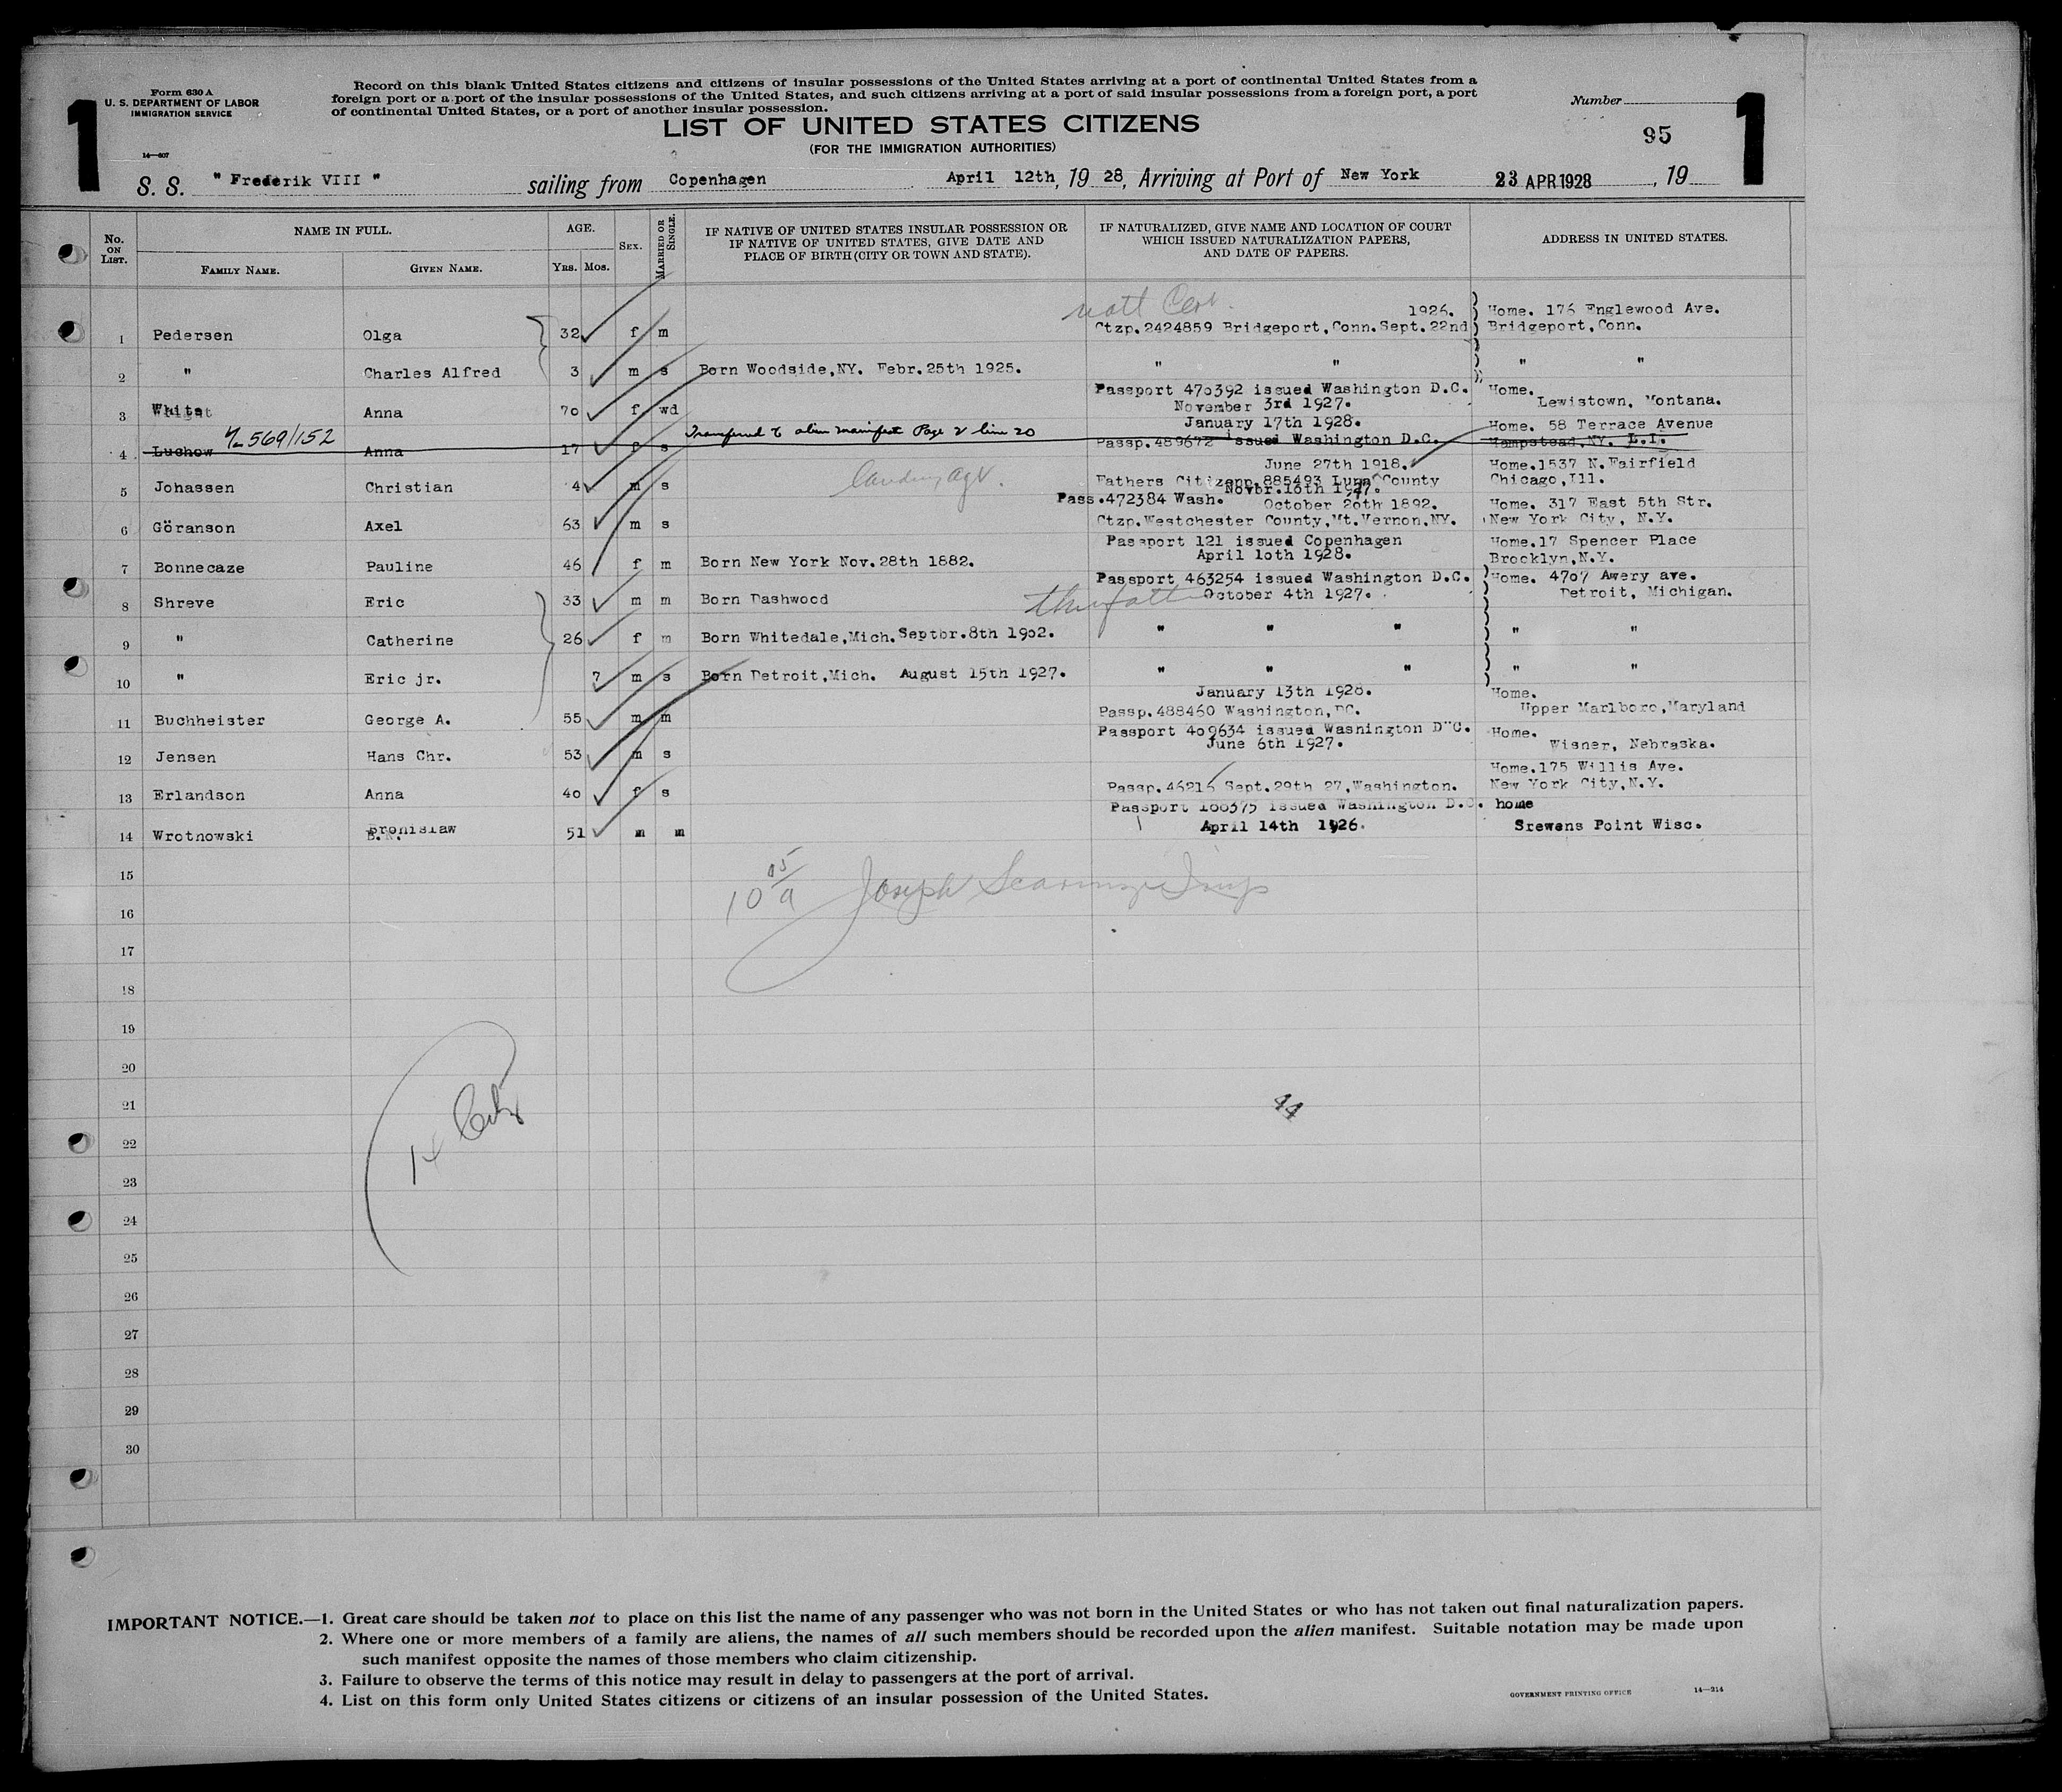 Form 630 A
U. S. DEPARTMENT OF LABOR
IMMIGRATION SERVICE
14—607
1
Record on this blank United States citizens and citizens of insular possessions of the United States arriving at a port of continental United States from a
foreign port or a port of the insular possessions of the United States, and such citizens arriving at a port of said insular possessions from a foreign port, a port
of continental United States, or a port of another insular possession.
LIST OF UNITED STATES CITIZENS
(FOR THE IMMIGRATION AUTHORITIES)
Number
95
1
S. S. " Frederik VIII " sailing from Copenhagen April 12th, 19 28, Arriving at Port of New York 23 APR 1928, 19
No. ON LIST.
NAME IN FULL.
FAMILY NAME.
GIVEN NAME.
AGE.
YRS. MOS.
SEX.
MARRIED OR SINGLE.
IF NATIVE OF UNITED STATES INSULAR POSSESSION OR
IF NATIVE OF UNITED STATES, GIVE DATE AND
PLACE OF BIRTH (CITY OR TOWN AND STATE).
IF NATURALIZED, GIVE NAME AND LOCATION OF COURT
WHICH ISSUED NATURALIZATION PAPERS,
AND DATE OF PAPERS.
ADDRESS IN UNITED STATES.
1926. Home. 176 Englewood Ave.
1 Pedersen Olga 32 f m Ctzp.2424859 Bridgeport,Conn.Sept.22nd Bridgeport,Conn.
2 " Charles Alfred 3 m s Born Woodside,NY. Febr.25th 1925. " " " "
Passport 470392 issued Washington D.C. Home.
3 White Anna 70 f wd November 3rd 1927. Lewistown, Montana.
569/152 Transferred to alien manifest Page 2 line 20 January 17th 1928. Home. 58 Terrace Avenue
4 Luchow Anna 17 f s Passp.489672 issued Washington D.C. Hampstead,NY. L.I.
June 27th 1918. Home.1537 N.Fairfield
5 Johassen Christian 4 m s Fathers Citizenp.885493 Luna County Chicago,Ill.
Pass.472384 Wash. Novbr.16th 1927.
October 20th 1892. Home. 317 East 5th Str.
6 Göranson Axel 63 m s Ctzp.Westchester County,Mt.Vernon,NY. New York City, N.Y.
Passport 121 issued Copenhagen Home.17 Spencer Place
7 Bonnecaze Pauline 46 f m Born New York Nov.28th 1882. April 10th 1928. Brocklyn,N.Y.
Passport 463254 issued Washington D.C. Home. 4707 Avery ave.
8 Shreve Eric 33 m m Born Dashwood October 4th 1927. Detroit, Michigan.
9 " Catherine 26 f m Born Whitedale,Mich.Septbr.8th 1902. " " " " "
10 " Eric jr. 7 m s Born Detroit,Mich. August 15th 1927. " " " " "
January 13th 1928. Home.
11 Buchheister George A. 55 m m Passp.488460 Washington,DC. Upper Marlboro,Maryland
Passport 409634 issued Washington D"C. Home.
12 Jensen Hans Chr. 53 m s June 6th 1927. Wisner, Nebraska.
Home.175 Willis Ave.
13 Erlandson Anna 40 f s Passp.46216 Sept.29th 27,Washington. New York City,N.Y.
Passport 160375 issued Washington D.C. home
14 Wrotnowski Bronislaw 51 m m April 14th 1926. Srewens Point Wisc.
15
Joseph
16
17
18
19
20
21
44
22
23
24
25
26
27
28
29
30
IMPORTANT NOTICE.—1. Great care should be taken not to place on this list the name of any passenger who was not born in the United States or who has not taken out final naturalization papers.
2. Where one or more members of a family are aliens, the names of all such members should be recorded upon the alien manifest. Suitable notation may be made upon
such manifest opposite the names of those members who claim citizenship.
3. Failure to observe the terms of this notice may result in delay to passengers at the port of arrival.
4. List on this form only United States citizens or citizens of an insular possession of the United States.
GOVERNMENT PRINTING OFFICE 14—214